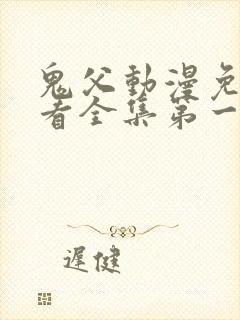 鬼父動漫免
看全集第一
遲健